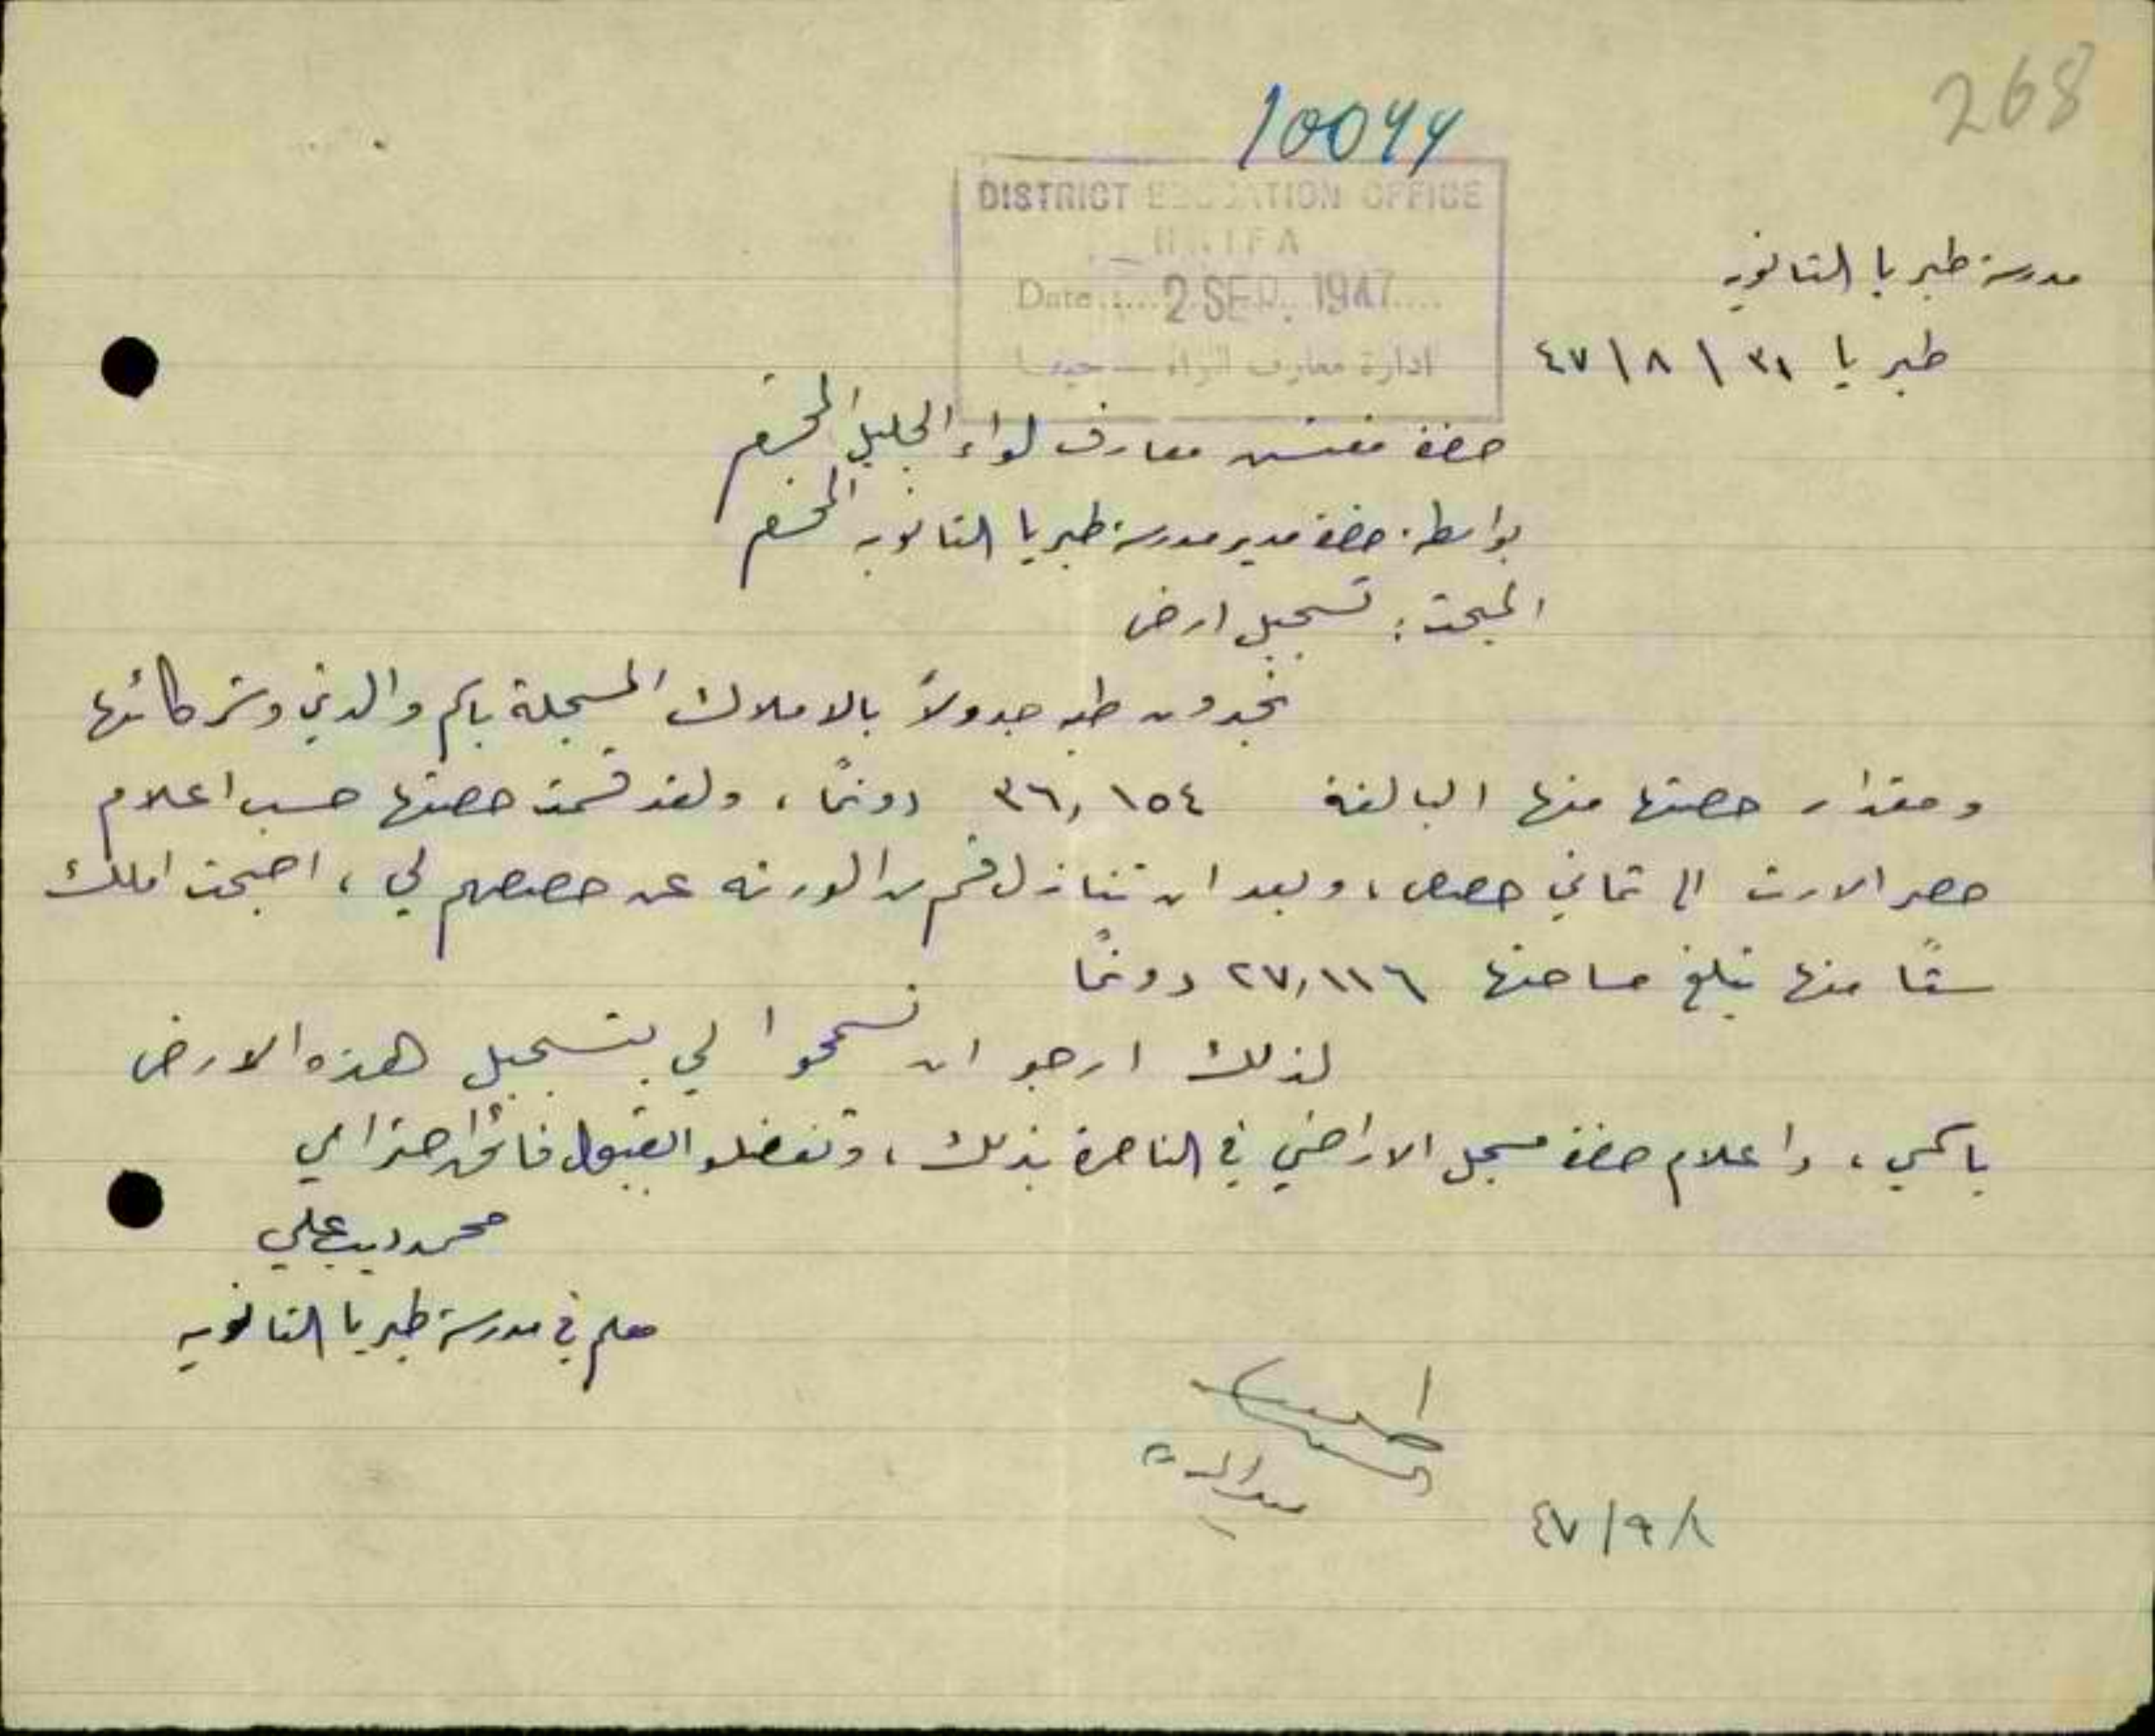 268
10044
DISTRICT EDUCATION OFFICE
HAIFA
Date ..... 2 SEP. 1947 ....
ادارة معارف اللواء – حيفا
مدرسة طبريا الثانويه
طبريا ٣١ / ٨ / ٤٧
حضرة مفتش معارف لواء الجليل المحترم
بواسطة حضرة مدير مدرسة طبريا الثانويه المحترم
المبحث: تسجيل ارض
تجدون طيه جدولاً بالاملاك المسجلة باسم والدتي وشركائها
ومقدار حصتها منها البالغة ٣٦,١٥٤ دونمًا، ولقد قسمت حصتها حسب اعلام
حصر الارث الى ثماني حصص، وبعد ان تنازل قسم من الورثه عن حصصهم لي، اصبحت املك
ستًا منها تبلغ مساحتها ٢٧,١١٦ دونمًا
لذلك ارجو ان تسمحوا لي بتسجيل هذه الارض
باسمي، واعلام حضرة مسجل الاراضي في الناصرة بذلك، وتفضلوا بقبول فائق احترامي
محمد ديب علي
معلم في مدرسة طبريا الثانويه
مدير المدرسة
٤٧/٩/١